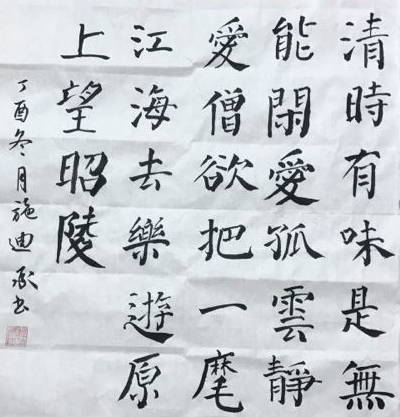 清時有味是無
能閑愛孤雲靜
愛僧欲把一麾
江海去樂遊原
上望昭陵
丁酉冬月施迪承书